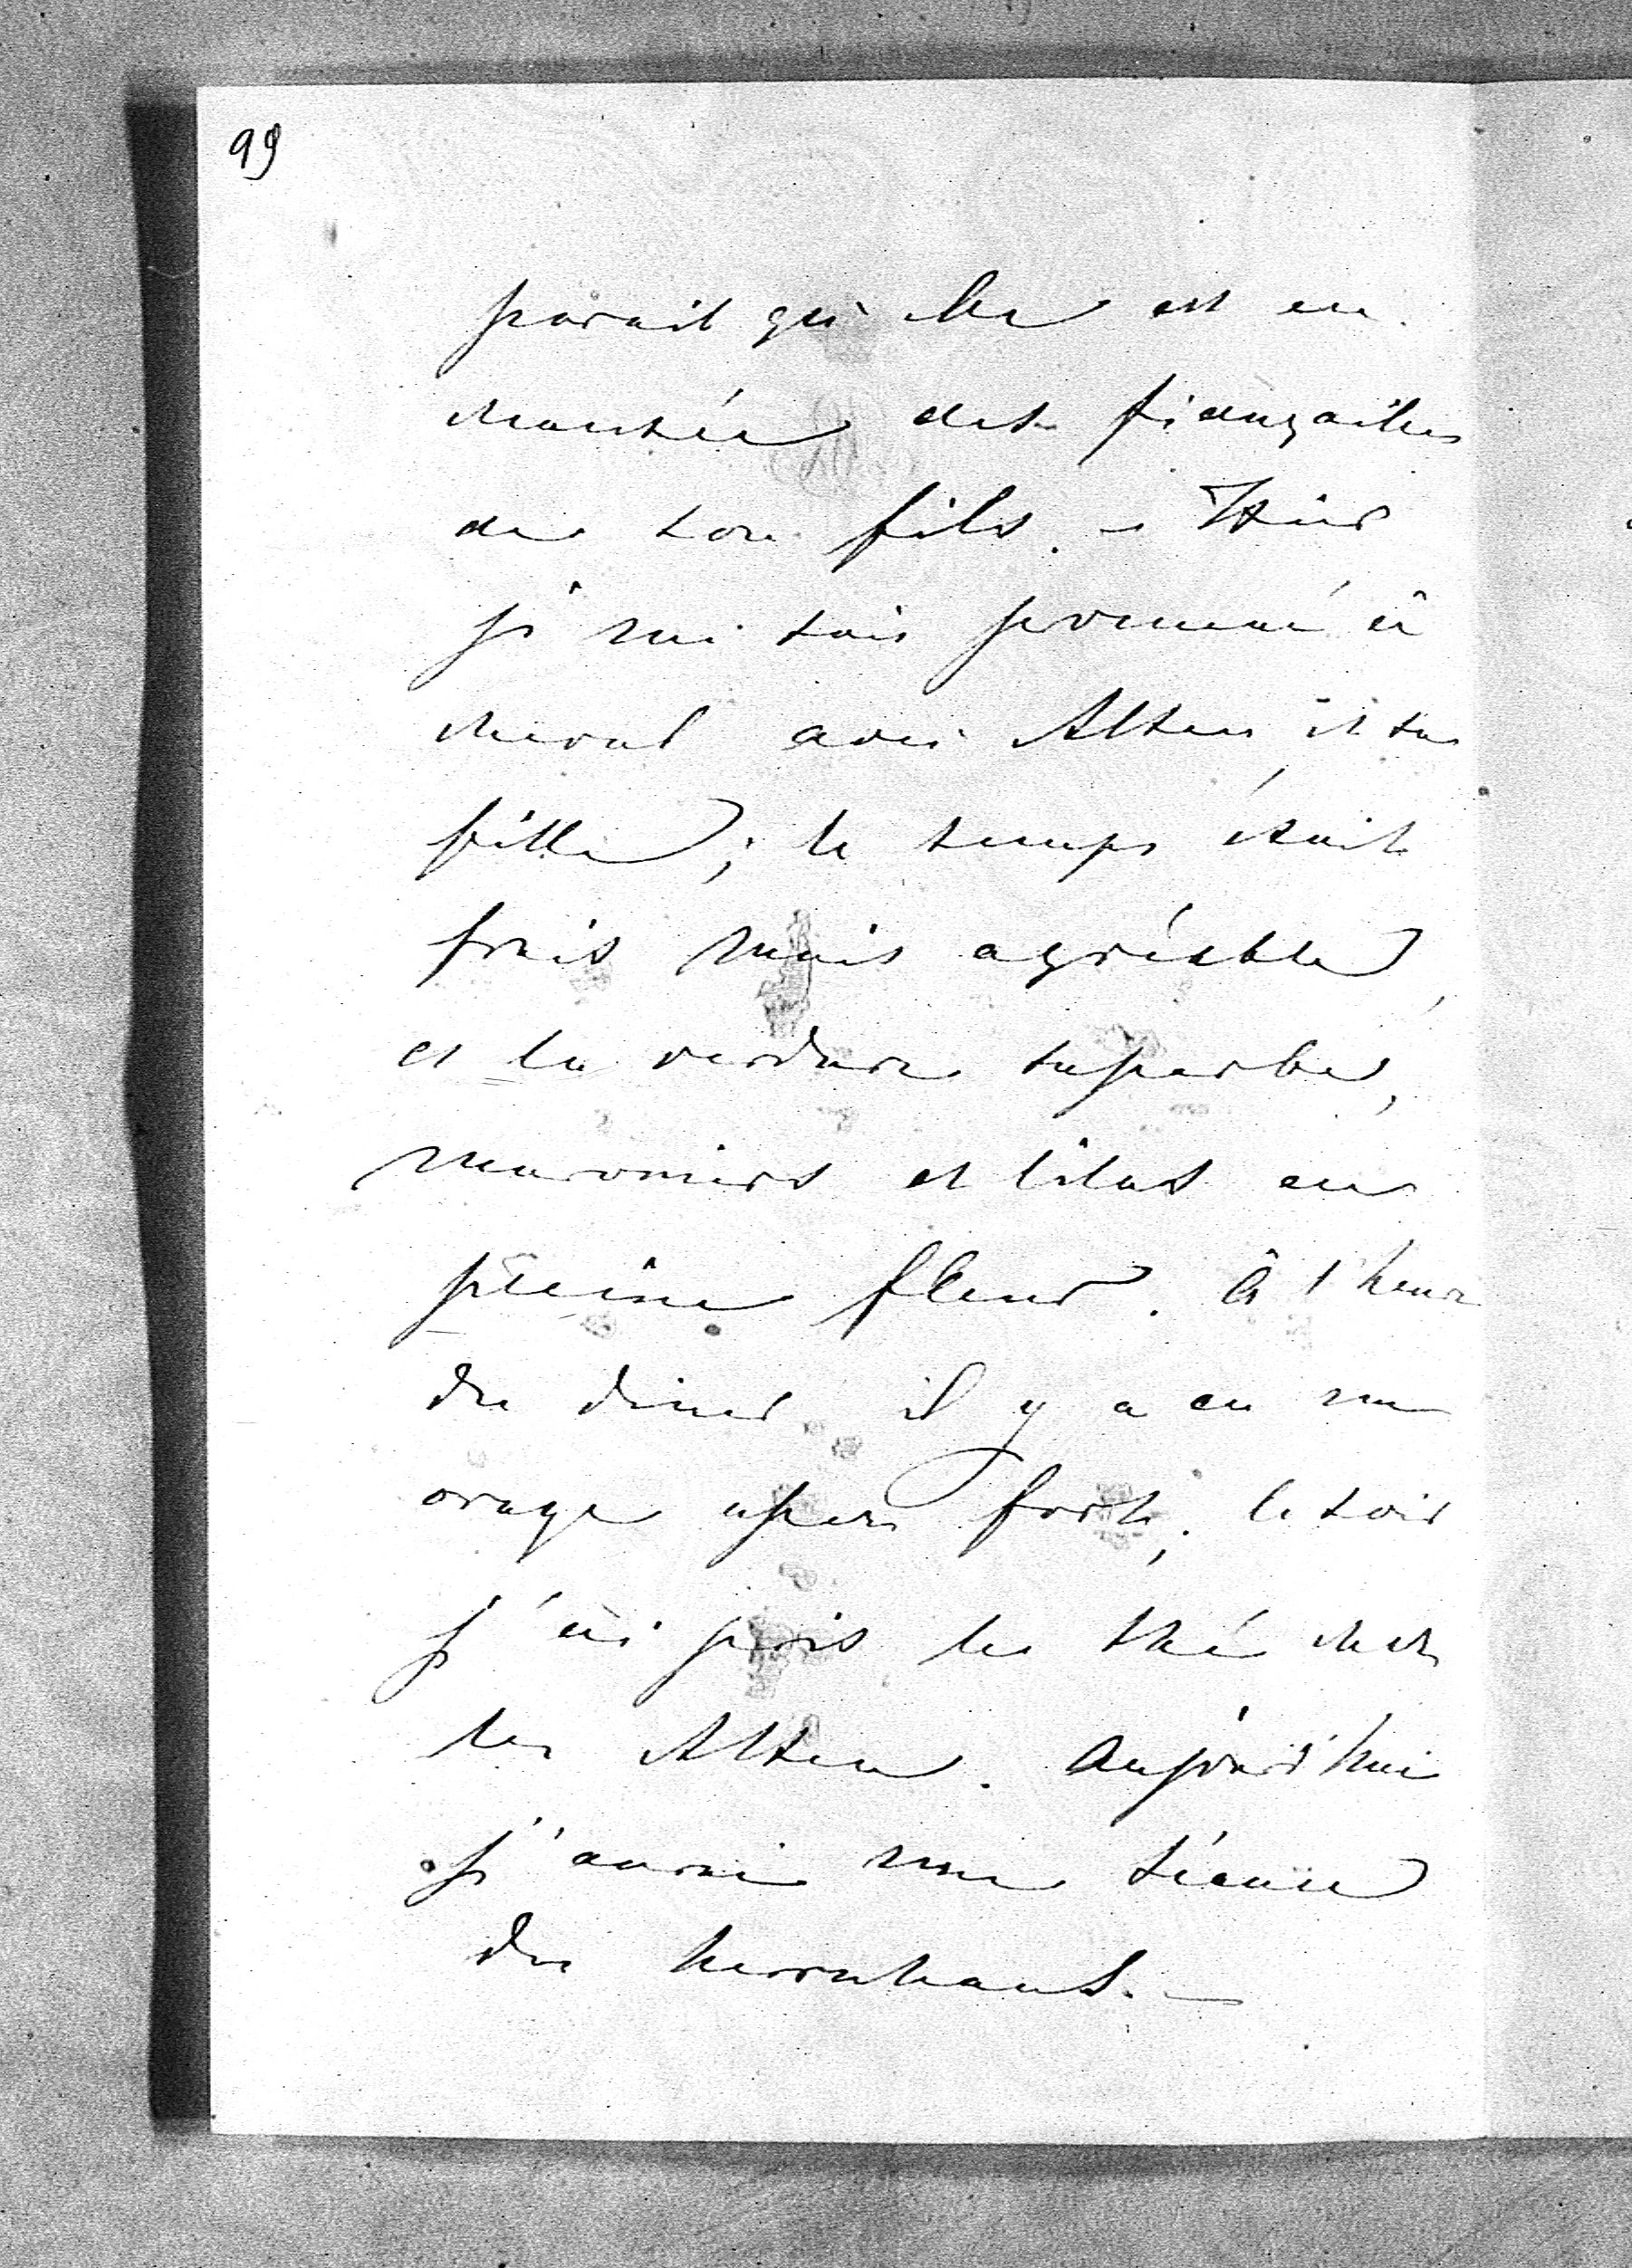 99
parait qu'elle est en-
chantée des fiançailles
de son fils. – Hier
je me suis promené à
cheval avec Alten et sa
fille; le temps était
frais mais agréable,
et la verdure superbe,
maroniers et lilas en
pleine fleur. à l'heure
du diner il y a eu un
orage assez fort; le soir
j'ai pris le thé chez
les Alten. aujourd'hui
j'aurai une séance
du herrnhaus. –